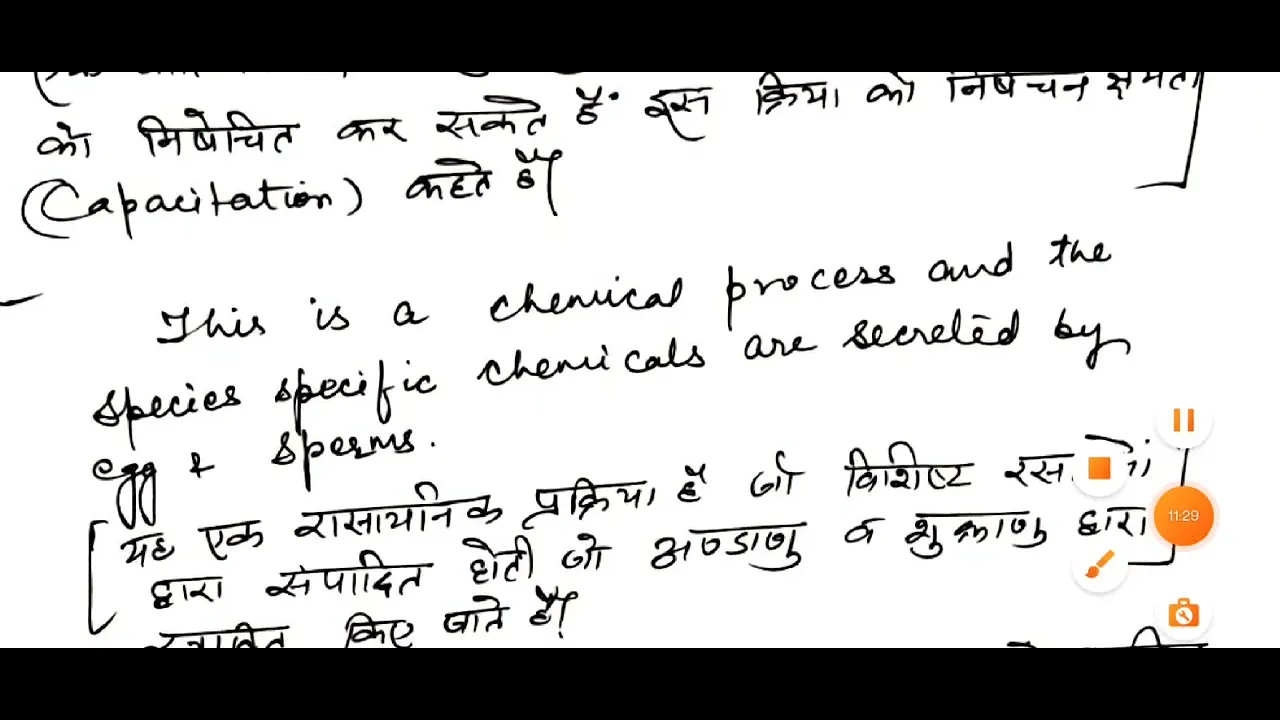 को निषेचित कर सकते हैं. इस क्रिया को निषेचन क्षमता
(Capacitation) कहते हैं|
This is a chemical process and the
species specific chemicals are secreted by
egg & sperms.
[यह एक रासायनिक प्रक्रिया है जो विशिष्ट
द्वारा संपादित होती जो अण्डाणु व शुक्राणु द्वारा]
स्त्रावित किए जाते हैं|
11:29